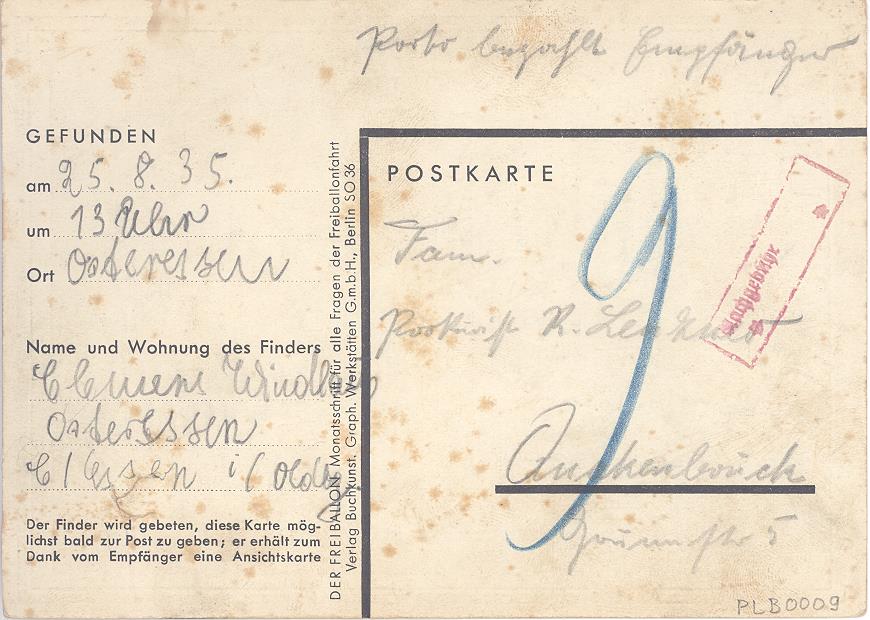 Porto bezahlt Empfänger
GEFUNDEN
am 25. 8. 35.
um 13 Uhr
Ort Osteressen
Name und Wohnung des Finders
Clemens
Osteressen
Essen i/Oldbg.
Der Finder wird gebeten, diese Karte mög-
lichst bald zur Post zu geben; er erhält zum
Dank vom Empfänger eine Ansichtskarte
DER FREIBALLON: Monatsschrift für alle Fragen der Freiballonfahrt
Verlag Buchkunst. Graph. Werkstätten G.m.b.H., Berlin SO 36
POSTKARTE
9
Nachgebühr
Fam.
R.
Quakenbrück
5
PLB0009